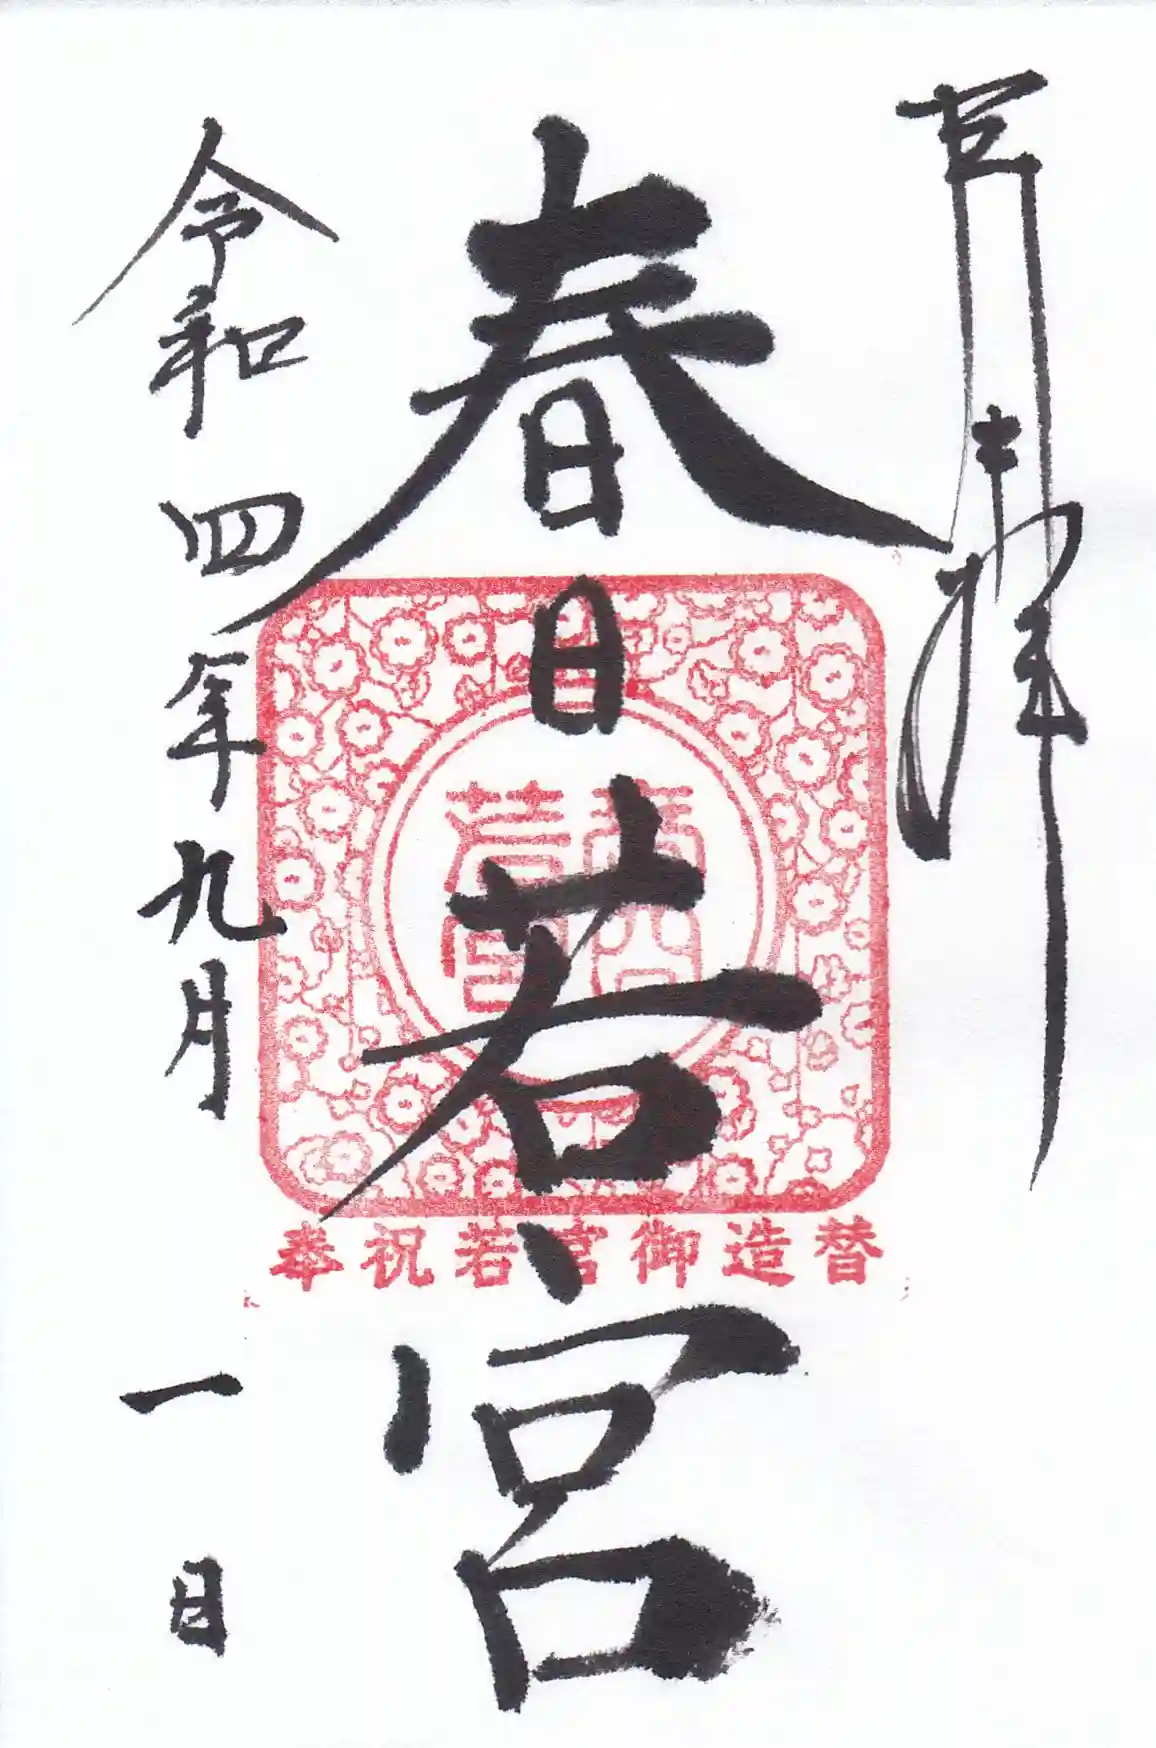 奉拝
春日若宮
令和四年九月一日
奉祝若宮御造替